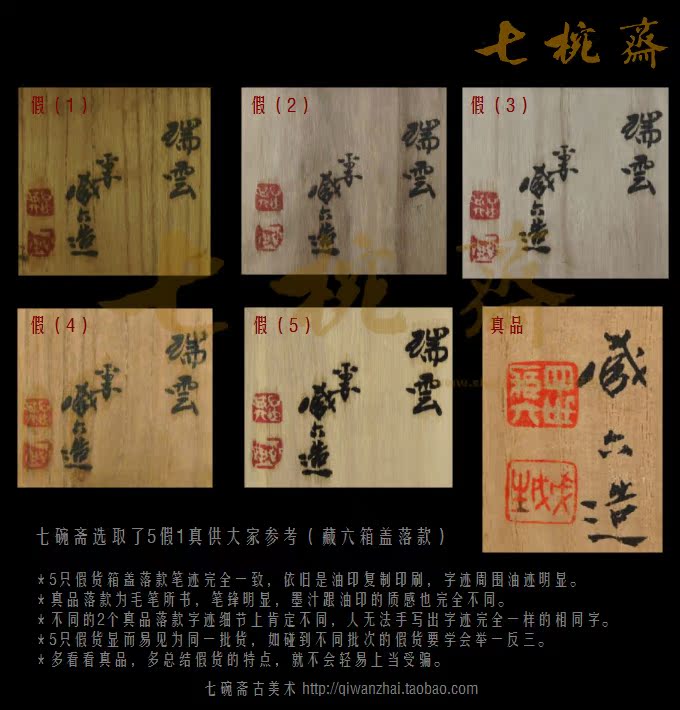 七椀斎
假（1）
瑞雲
平
蔵六造
假（2）
瑞雲
平
蔵六造
假（3）
瑞雲
平
蔵六造
假（4）
瑞雲
平
蔵六造
假（5）
瑞雲
平
蔵六造
真品
蔵六造
七椀斎
七碗斋选取了5假1真供大家参考（藏六箱盖落款）
*5只假货箱盖落款笔迹完全一致，依旧是油印复制印刷，字迹周围油迹明显。
*真品落款为毛笔所书，笔锋明显，墨汁跟油印的质感也完全不同。
*不同的2个真品落款字迹细节上肯定不同，人无法手写出字迹完全一样的相同字。
*5只假货显而易见为同一批货，如碰到不同批次的假货要学会举一反三。
*多看看真品，多总结假货的特点，就不会轻易上当受骗。
七碗斋古美术 http://qiwanzhai.taobao.com